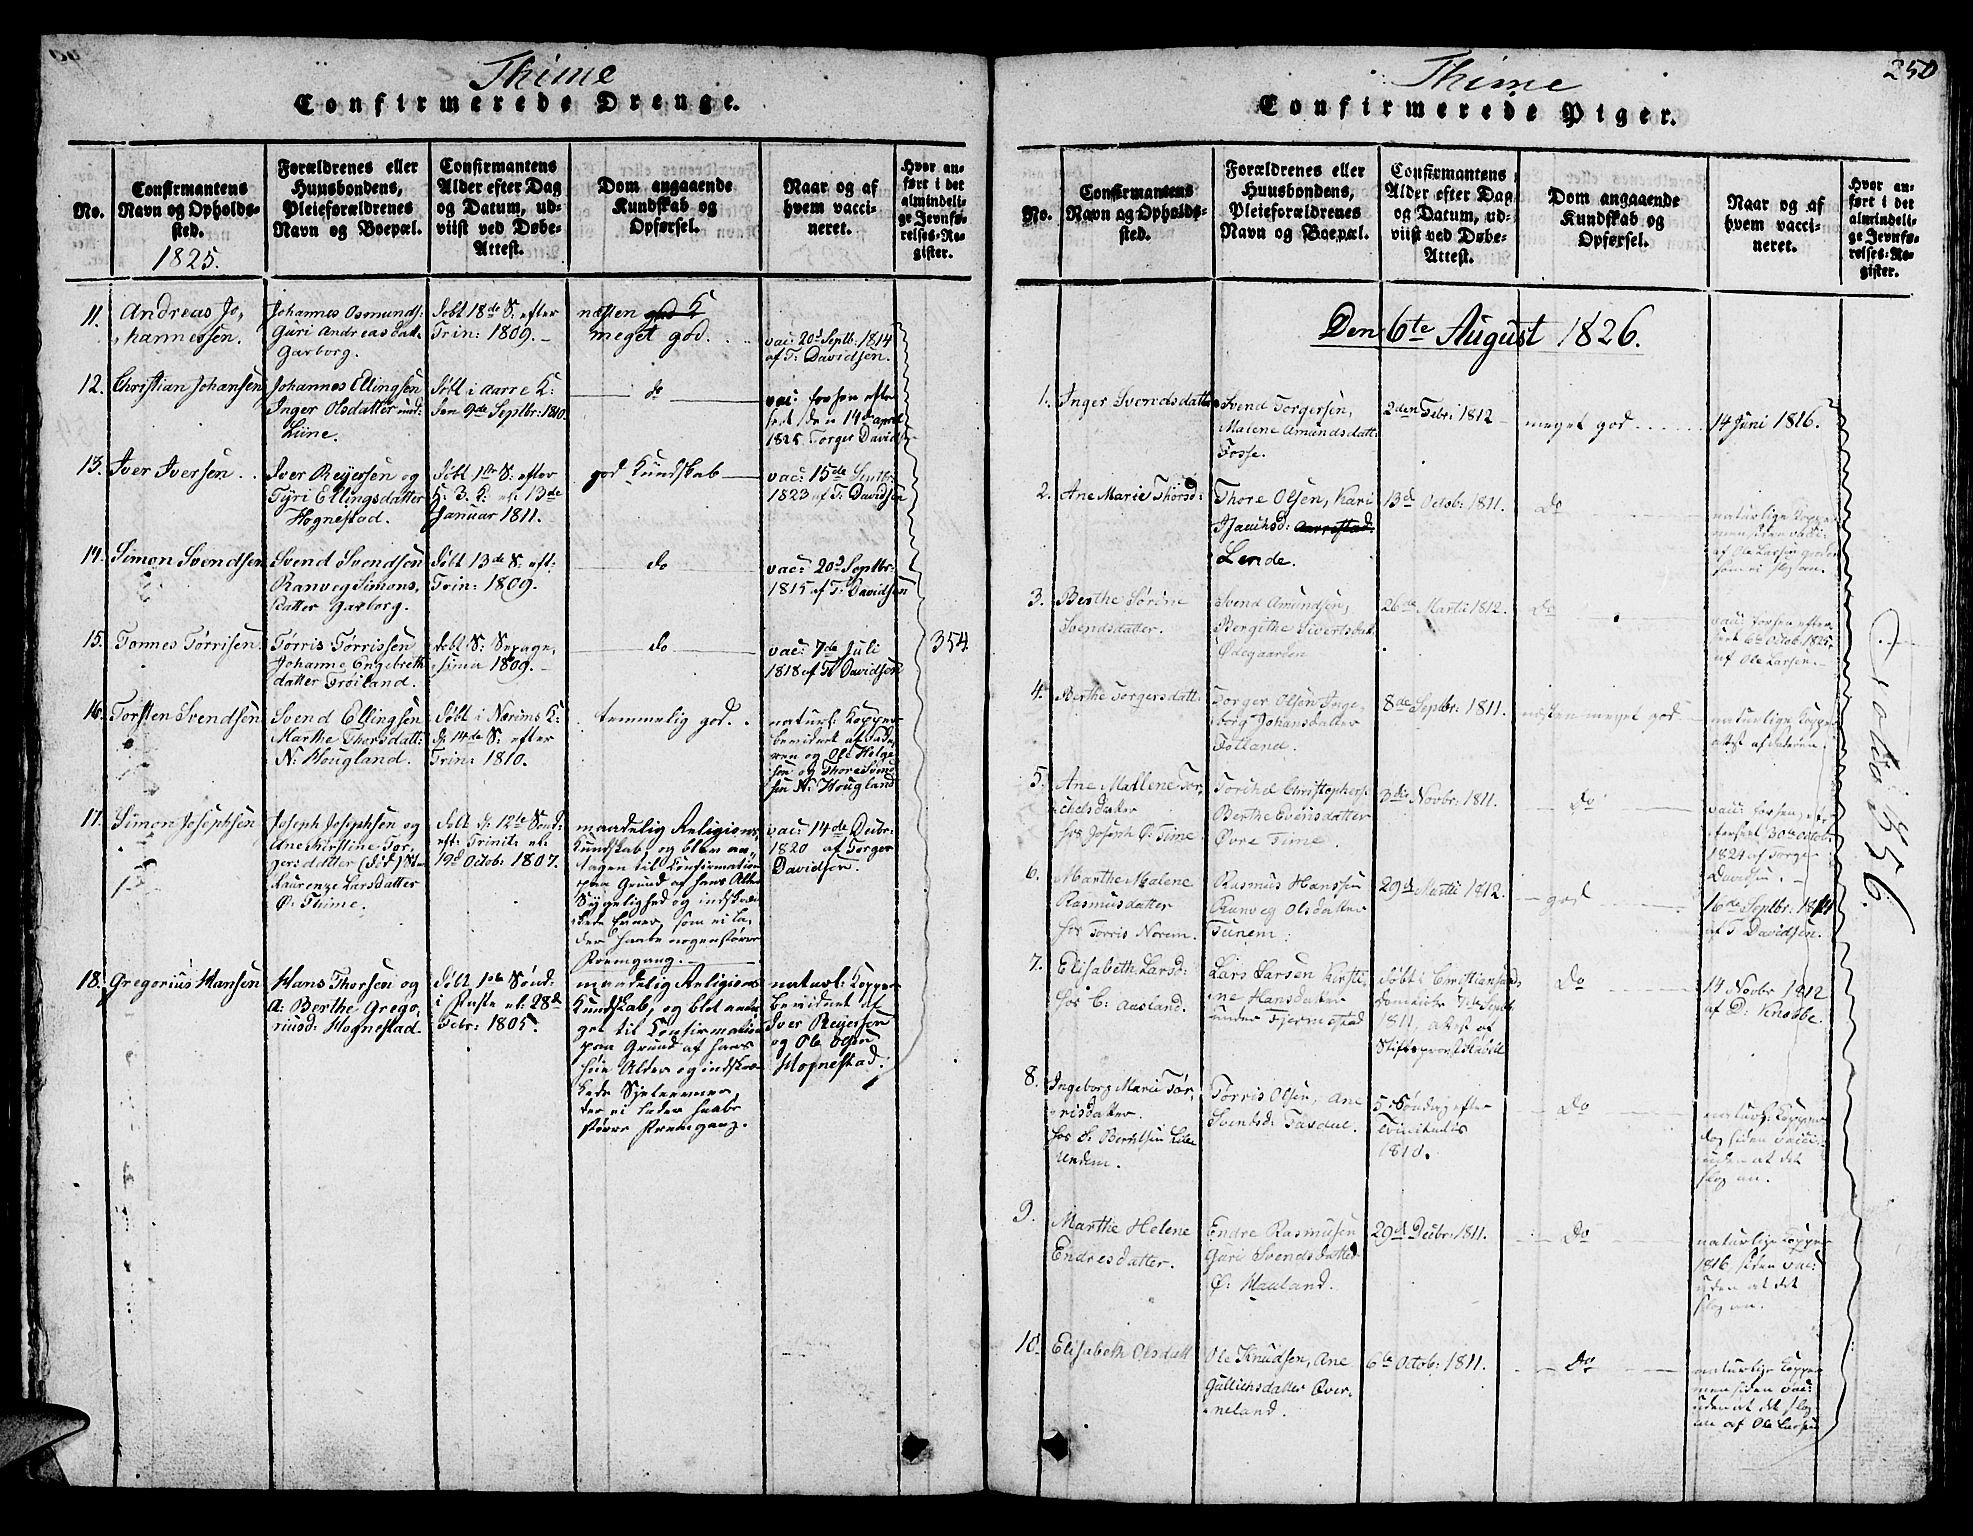 Thime
Confirmerede Drenge.
No.
Confirmantens
Navn og Opholds-
sted.
1825.
Forældrenes eller
Huusbondens,
Pleieforældrenes
Navn og Boepæl.
Confirmantens
Alder efter Dag
og Datum, ud-
viist ved Døbe-
Attest.
Dom angaaende
Kundskab og
Opførsel.
Naar og af
hvem vacci-
neret.
Hvor an-
ført i det
almindeli-
ge Jevnfø-
relses-Re-
gister.
11.
Andreas Jo,
hannessen.
Johannes Osmunds:
Guri Andreasdatt
Garborg.
døbt 18de S. efter
Trin: 1809.
næsten
meget god.
vac: 20d Septb. 1814
af T. Davidsen.
12.
Christian Johansen
Johannes Ellingsen
Inger Olsdatter
Liine.
døbt i Aarre K:
den 9de Septbr: 1810.
do
vac:
den 14de april
1825 Torger Davids
13.
Iver Iversen
Iver Reijersen og
Tyri Ellingsdatter
Hognestad.
døbt 1ste S: efter
H: 3 K: el: 13de
Januar 1811.
god Kundskab
vac: 15de Septbr
1823 af T. Davidsen
14.
Simon Svendsen
Svend Svendsen
Ranveg Simons,
datter Garborg.
døbt 13de S. eft:
Trin: 1809.
do
vac: 20d Septbr:
1815 af T. Davidsen
15.
Tonnes Tørrisen
Tørris Tørrissen
Johanne Engebreth
datter Frøiland.
døbt S: Sexage,
sima 1809.
do
vac: 7de Juli
1818 af T. Davidsen
354
16.
Torsten Svendsen
Svend Ellingsen
Marthe Thorsdatt:
N: Hougland.
døbt i Nærims K:
d: 14de S: efter
Trin: 1810.
temmelig god.
naturl: Kopper
bevidnet af Fade,
ren og Ole Helge
sen og Thore Svend
sen N: Hougland
17.
Simon Josephsen
Joseph Josephsen og
Ane Kirstine Tor,
gersdatter
Laurenze Larsdatter
Ø: Thime.
døbt d: 12te Sønd:
eft: Trinit: el:
19d Octob: 1807.
maadelig Religions
Kundskab, og blev an,
tagen til Confirmation
paa Grund af hans Alder
Sygelighed og indskræn
kede Evner, som ei la,
der haabe nogen større
Fremgang.
vac: 14de Decbr:
1820 af Torger
Davidsen.
18.
Gregorius Hansen
Hans Thorsen og
A: Berthe Grego,
riusd: Hognestad.
døbt 1ste Sønd:
i Faste el: 28de
Febr: 1805.
maadelig Religions
Kundskab, og blev anta
get til Confirmation
paa Grund af hans
høie Alder og indskræn
kede Sjeleevner,
der ei lader haabe
større Fremgang.
naturl: Kopper
bevidnet af
Iver Reijersen
og Ole
Hognestad.
Thime
250
Confirmerede Piger.
No.
Confirmantens
Navn og Opholds-
sted.
Forældrenes eller
Huusbondens,
Pleieforældrenes
Navn og Boepæl.
Confirmantens
Alder efter Dag
og Datum, ud-
viist ved Døbe-
Attest.
Dom angaaende
Kundskab og
Opførsel.
Naar og af
hvem vacci-
neret.
Hvor an-
ført i det
almindeli-
ge Jevnfø-
relses-Re-
gister.
Den 6te August 1826.
1.
Inger Svendsdatter
Svend Torgersen,
Malene Amundsdatt:
Fosse.
2den Febr: 1812
meget god
14 Juni 1816.
2.
Ane Marie Thorsd:
Thore Olsen, Kari
Aarrestad
Lende.
13d Octob: 1811.
Do
naturlige Kopper
men siden vacc:
af Ole Larsen
3.
Berthe Sørine
Svendsdatter.
Svend Amundsen,
Bergithe Sivertsdat
Ødegaarden
26de Martii 1812.
Do
vac:
6te Octob: 1825
af Ole Larsen.
4.
Berthe Torgersdatt.
Torger Olsen Inge,
borg Johansdatter
Fotland.
8de Septbr: 1811.
næsten meget god
naturlige Kopper
attest af Faderen.
5.
Ane Mallene Tor,
kelsdatter
hos Joseph Ø: Time
Christophers:
Berthe Evensdatter
Øvre Time.
3die Novbr: 1811.
do
30te Octob:
1824 af Torge
Davidsen.
6.
Marthe Malene
Rasmusdatter
hos Torris Norem.
Rasmus Hanssen
Ranveg Olsdatter
Tunem.
29de Martii 1812.
god
16de Septbr: 1814
af T. Davidsen.
7.
Elisabeth Larsd:
hos C: Aasland.
Lars Larsen Kirsti,
ne Hansdatter
under Fjermestad
døbt i Christiansands
Domkirke 7de Septbr
1811, attest af
Stiftsprovst
Do
14 Novbr 1812
af D: Knobbe.
8.
Ingeborg Marie Tør,
risdatter.
Undem.
Tørris Olsen, Ane
5: Søndag efter
Trinitatis
1810.
Do
naturl: Kopper
dog siden vacci:
uden at det
slog an.
9.
Marthe Helene
Endresdatter.
Endre Rasmusen
Guri Svendsdatter
Ø: Mauland.
29d Decbr: 1811.
Do
naturlige Kopper
1816 siden vac:
uden at det
slog an.
10.
Elisabeth Olsdatt
Ole Knudsen, Ane
Gulliksdatter Qver,
neland.
6te Octob: 1811.
Do
naturlige Kopper
men siden vac:
uden at det slog
an af Ole Larsen
356.